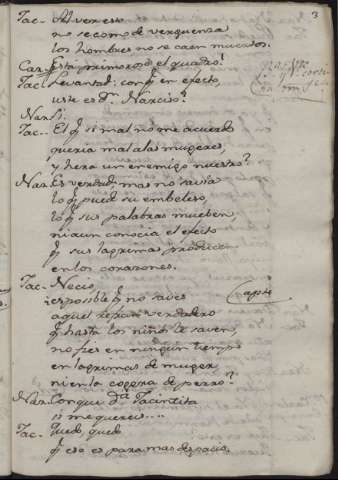 3
Jac. Al ver esto
no se como de verguenza
los hombres no se caen muertos.
Está primoroso el quadro!
Jac. Levantad: con q.e en efecto,
uste es D.n Narciso?
Nar. Si.
Jac. El q.e si mal no me acuerdo
queria mal a las mugeres,
y hera un enemigo nuestro?
Nar. Es verdad; mas no savia
lo q.e puede su embeleso,
lo q.e sus palabras mueben,
ni aun conocia el efecto
q.e sus lagrimas producen
en los corazones.
Jac. Necio,
es posible q.e no saves
aquel refran verdadero
q.e hasta los niños le saven,
no fies en ningun tiempo
en lagrimas de muger
ni en la cogera de perro?
Nar. Conque D.a Jacintita
si me quereis....
Jac. Quedo, quedo
q.e eso es para mas despacio,